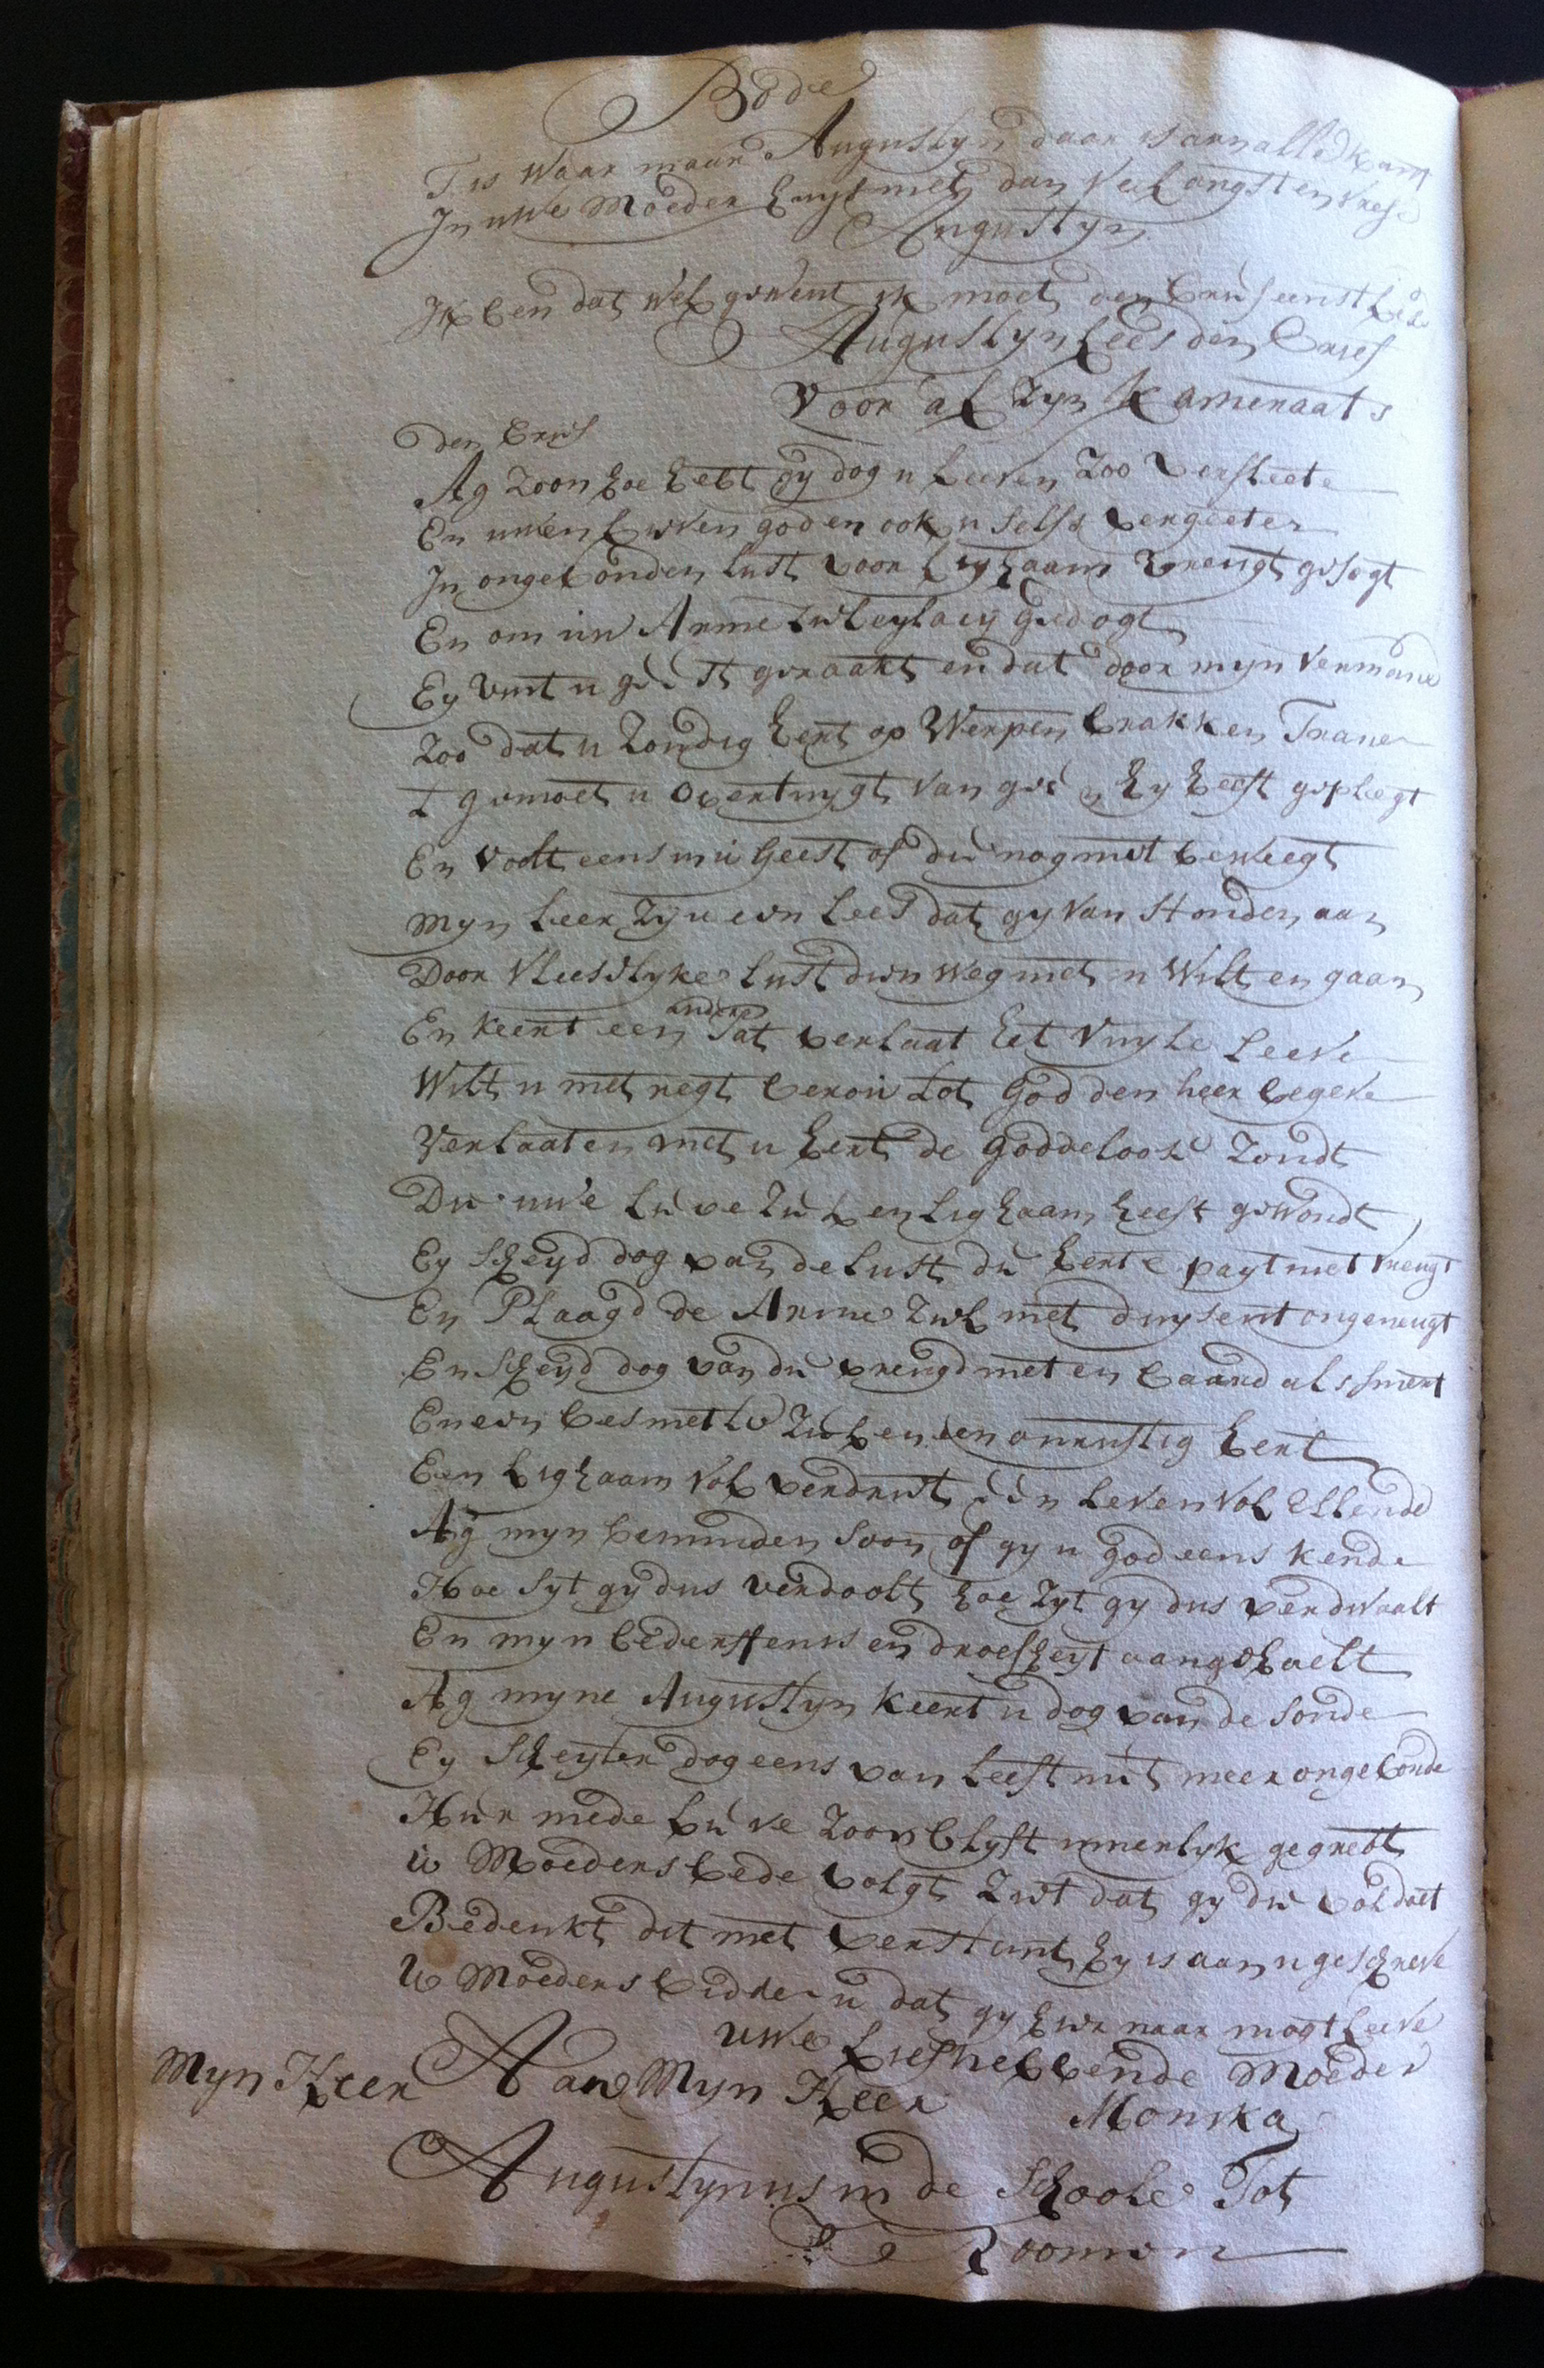 Bode
T is waar maar Augustyn daar is aan alle kant
In uwe Moeder huys niet dan veel angst en vrese
Augustyn
Ik ben dat wel gewent ik moet den brief eenst
Augustyn Lees den brief
Voor al zyn kameraats
den brief
Ag zoon hoe hebt gy dog u leeven zoo versleete
En uwen liven god en ook u selfs vergeeten
In ongebonden lust voor lighaams vreugt gesogt
En om uw Arme ziel eylaey gedogt
Ey vint u geest geraakt en dat door myn vermane
Zoo dat u zondig hert op werpen brakken Trane
T gemoet u overtuygt van geen hy heeft gepleegt
En voelt eens uw Geest of die nog niet beweegt
Myn leer zy u een lees dat gy van stonden aan
Door vleeslyke lust dien weg niet u wilt en gaan
En keert een andere Pat verlaat het vuyle leeve
Wilt u met regt berou tot God den heer begeve
Verlaaten met u hert de goddeloose zondt
Die uwe lieve ziel en lighaam heeft gewondt
Ey scheyd dog van de lust die herte payt met vreugt
En Plaagd de Arme ziel met duysent ongeneugt
En scheyd dog van die vreugd niet en baard als smert
En een besmette ziel en een onrustig hert
Een lighaam vol verdriet een leven vol ellende
Ag myn beminden soon of gy u god eens kende
Hoe syt gy dus verdoolt hoe zyt gy dus verdwaalt
En myn bederffenis en droefheyt aangehaelt
Ag myne Augustyn keert u dog van de sonde
Ey scheyter dog eens van leeft niet meer ongebonde
Hier mede lieve zoon blyft innerlyk gegroett
U Moeders bede volgt ziet dat gy die voldoet
Bedenkt dit met verstant hy is aan u geschreve
U Moeders bidde u dat gy hier naar mogt leeve
Uwe liefhebbende Moeder
Monika
Myn Heer Aan Myn Heer
Augustynus in de schoole Tot
Roomen